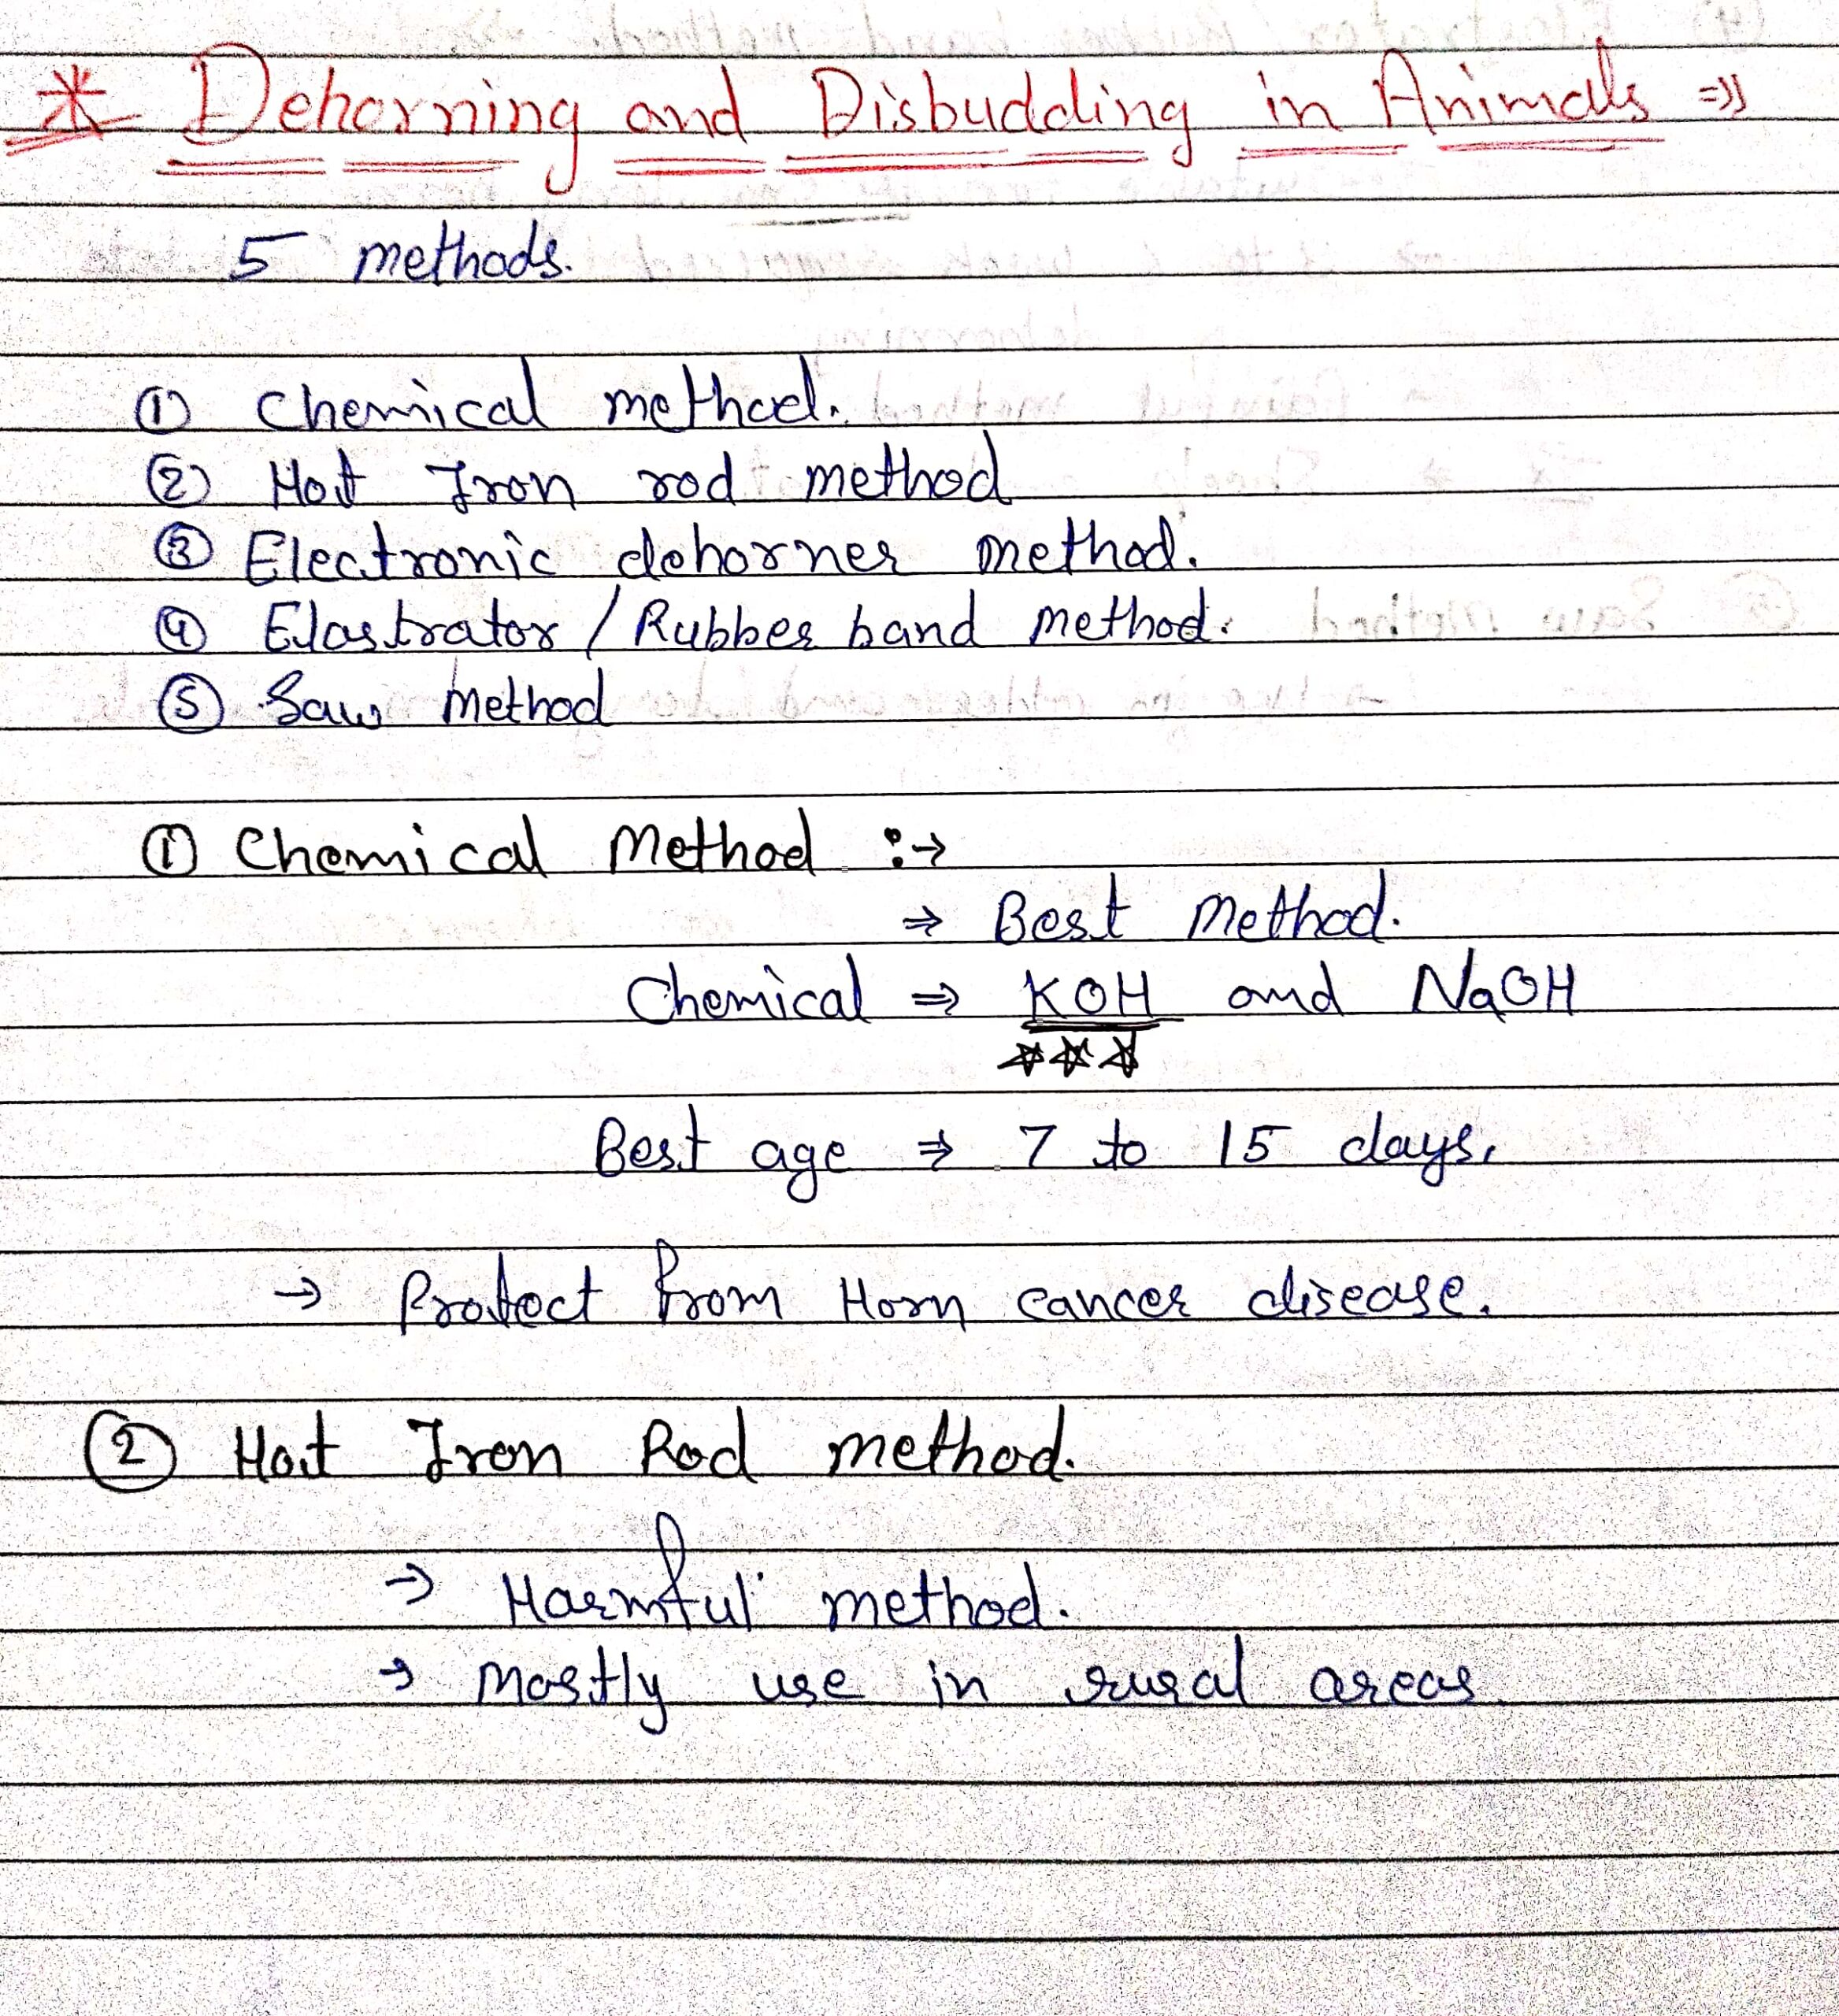 * Dehorning and Disbudding in Animals ⇒))
5 methods.
① Chemical method.
② Hot Iron rod method
③ Electronic dehorner method.
④ Elastrator / Rubber band method.
⑤ Saw method
① Chemical Method :→
⇒ Best Method.
Chemical ⇒ KOH and NaOH
☆☆☆
Best age ⇒ 7 to 15 days.
→ Protect from Horn cancer disease.
② Hot Iron Rod method.
→ Harmful method.
→ Mostly use in rural areas.